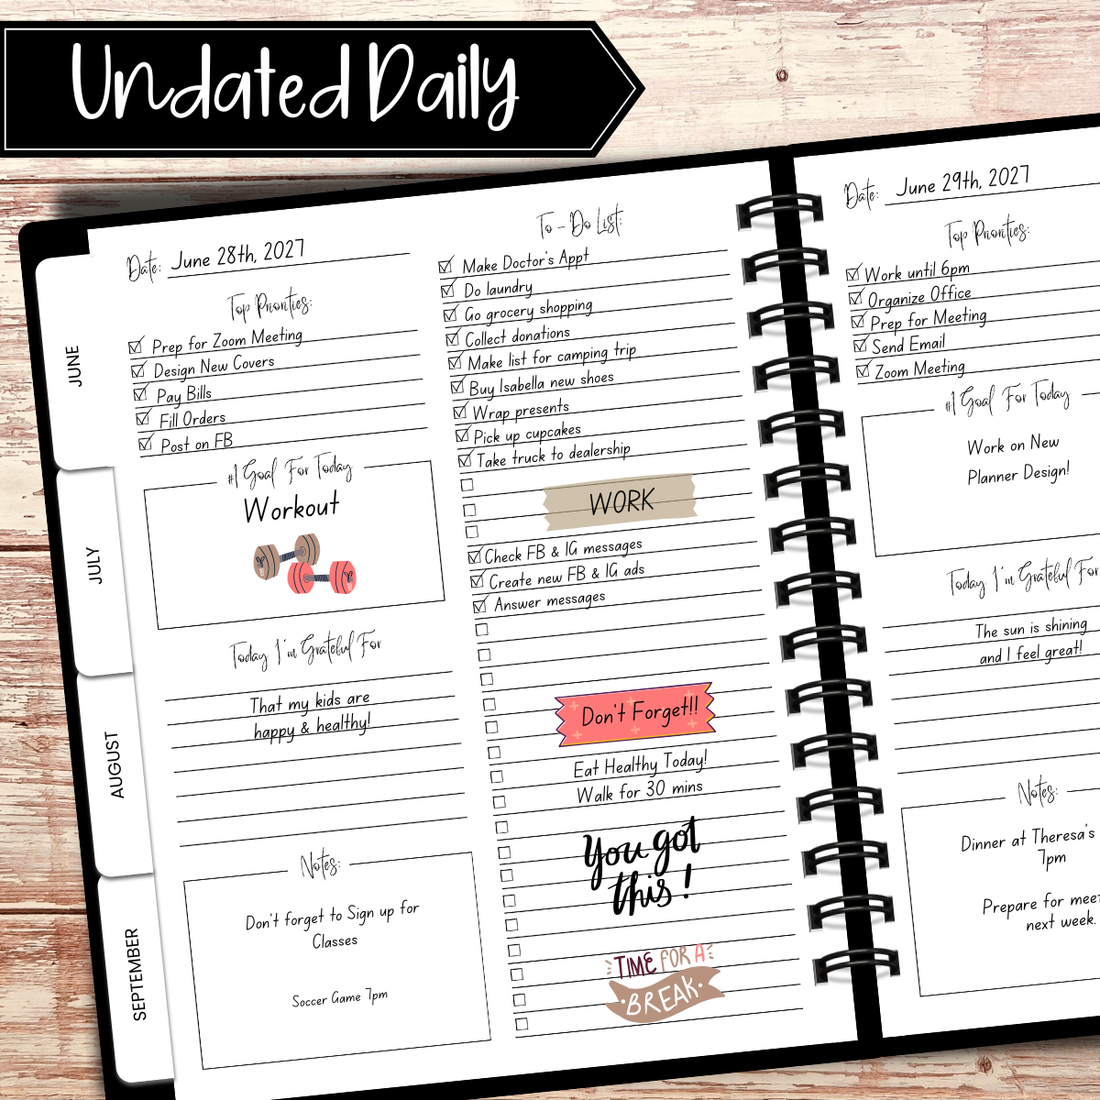 Undated Daily
JUNE
JULY
AUGUST
SEPTEMBER
Date: June 28th, 2027
Top Priorities:
Prep for Zoom Meeting
Design New Covers
Pay Bills
Fill Orders
Post on FB
#1 Goal For Today
Workout
Today I'm Grateful For
That my kids are
happy & healthy!
Notes:
Don't forget to Sign up for
Classes
Soccer Game 7pm
To - Do List:
Make Doctor's Appt
Do laundry
Go grocery shopping
Collect donations
Make list for camping trip
Buy Isabella new shoes
Wrap presents
Pick up cupcakes
Take truck to dealership
WORK
Check FB & IG messages
Create new FB & IG ads
Answer messages
Don't Forget!!
Eat Healthy Today!
Walk for 30 mins
You got
this!
TIME FOR A
BREAK
Date: June 29th, 2027
Top Priorities:
Work until 6pm
Organize Office
Prep for Meeting
Send Email
Zoom Meeting
#1 Goal For Today
Work on New
Planner Design!
Today I'm Grateful For
The sun is shining
and I feel great!
Notes:
Dinner at Theresa's
7pm
Prepare for
next week.